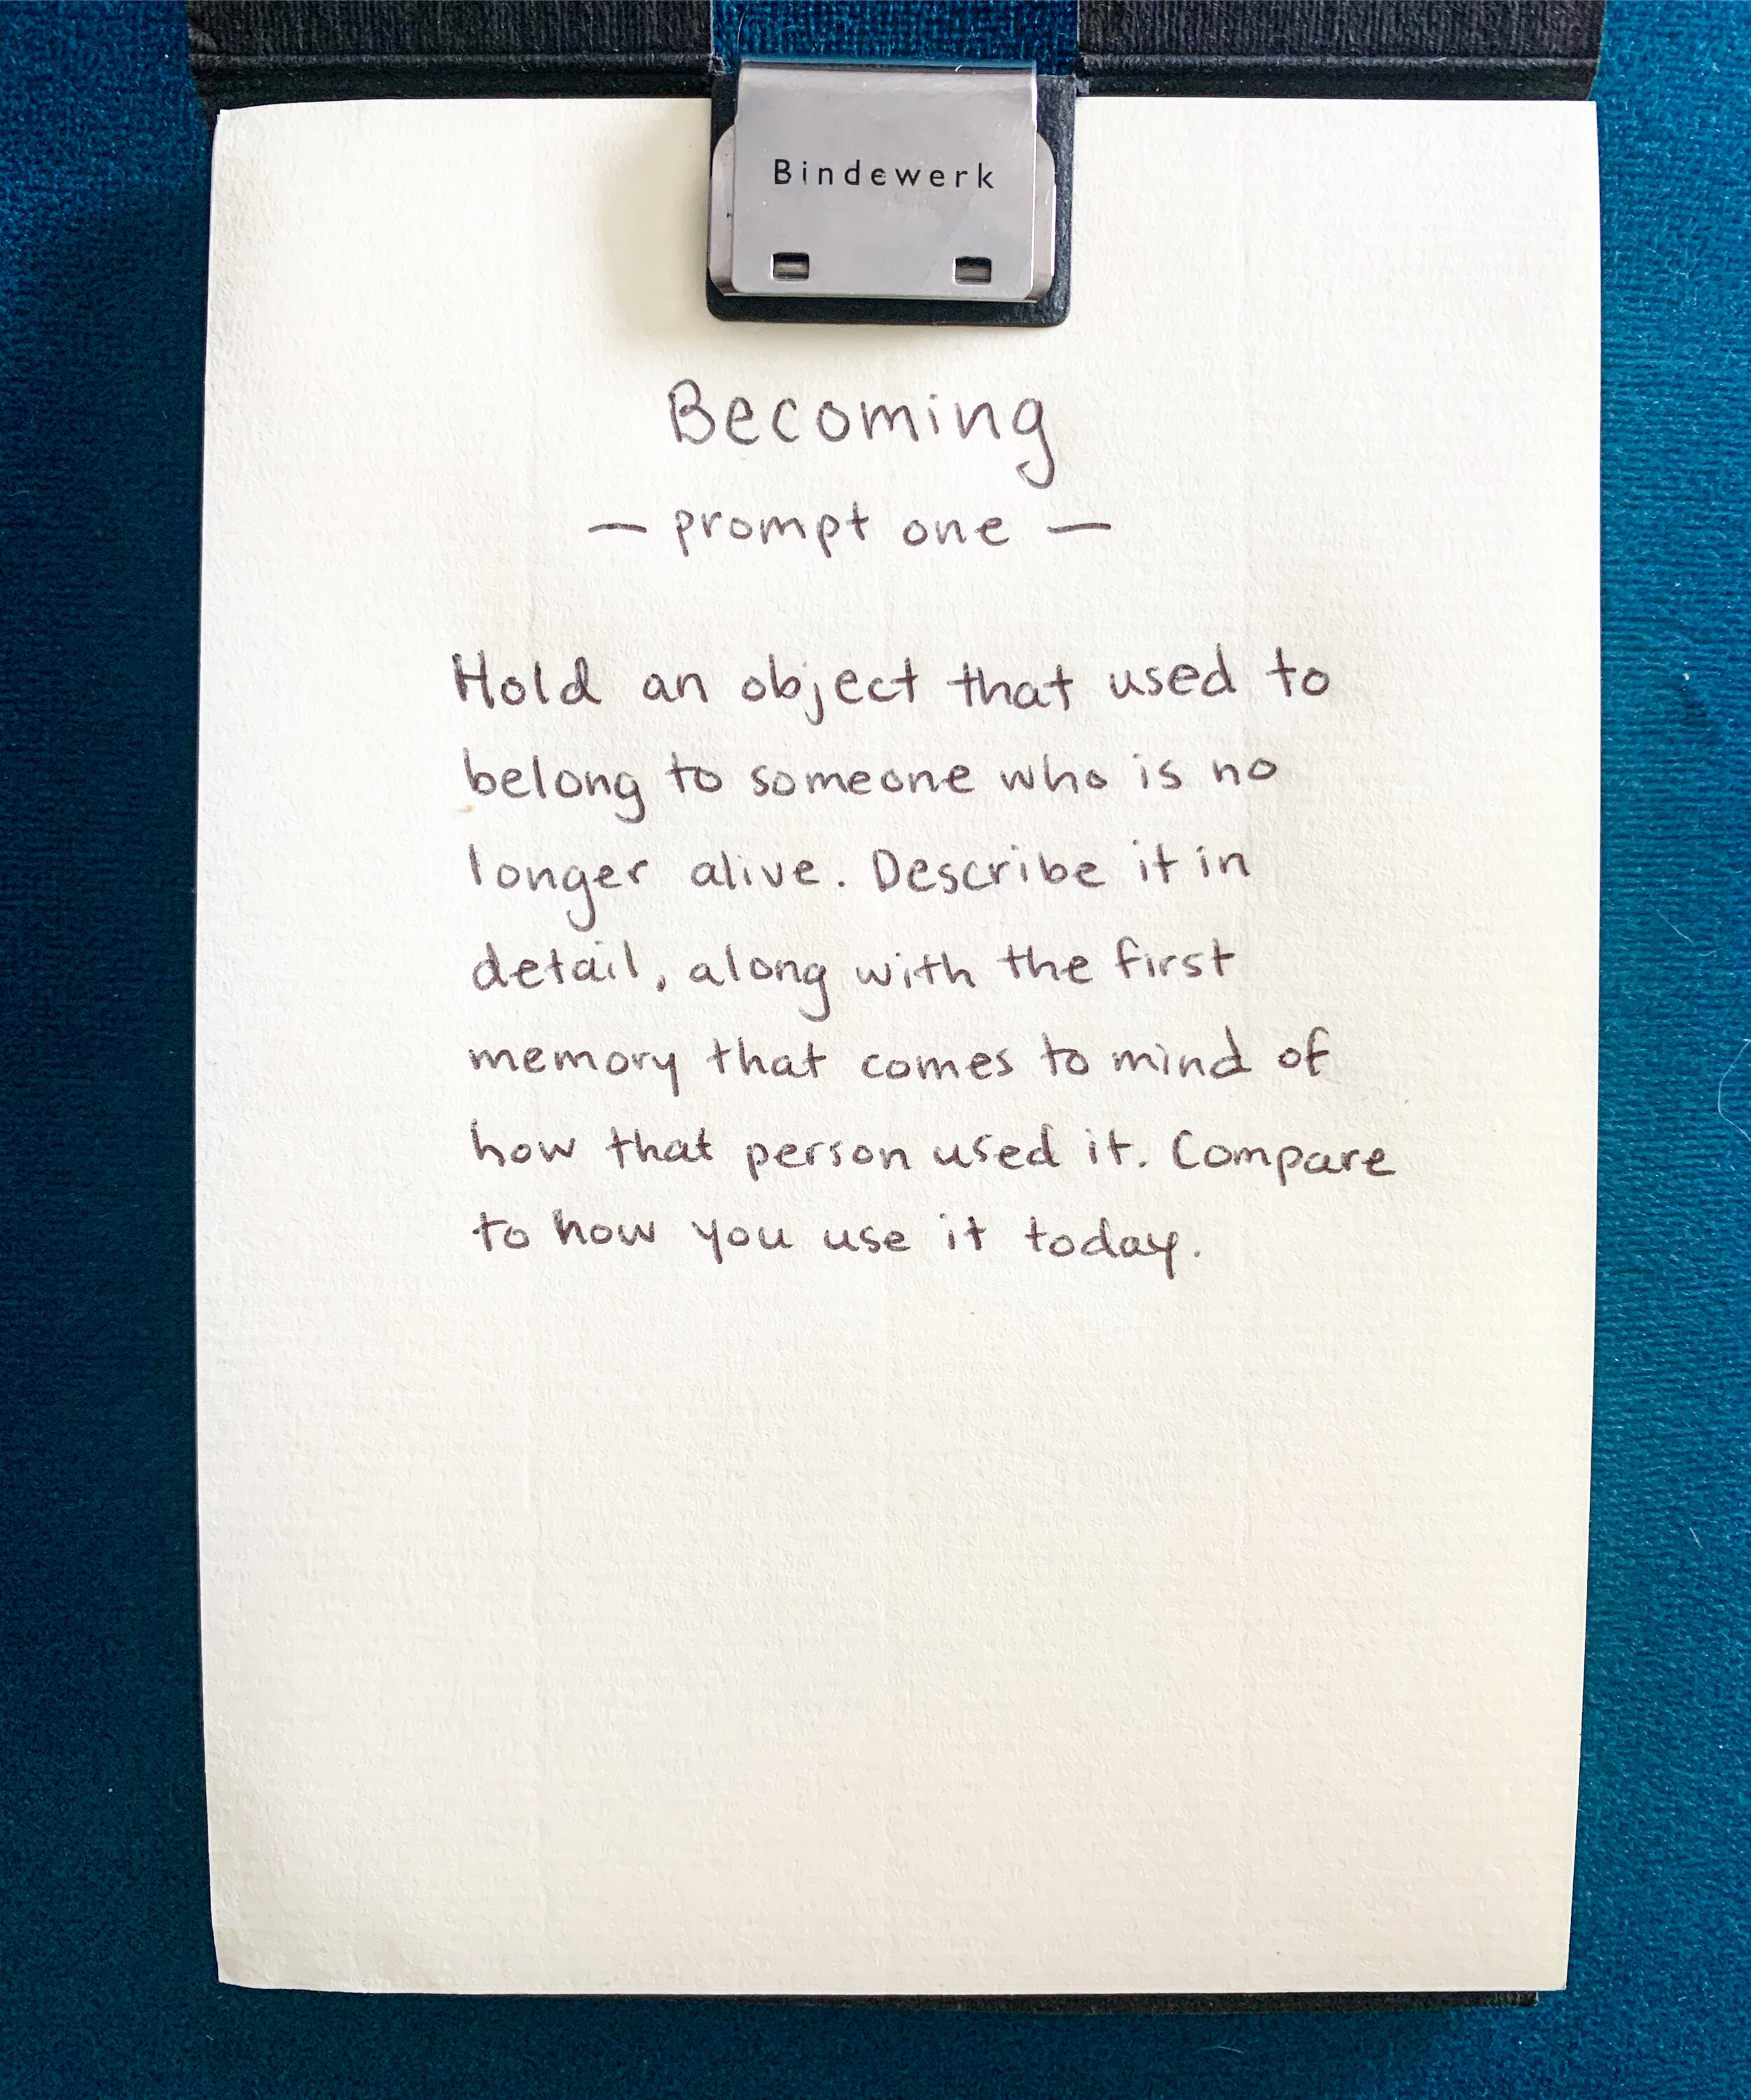 Bindewerk
Becoming
— prompt one —
Hold an object that used to
belong to someone who is no
longer alive. Describe it in
detail, along with the first
memory that comes to mind of
how that person used it. Compare
to how you use it today.